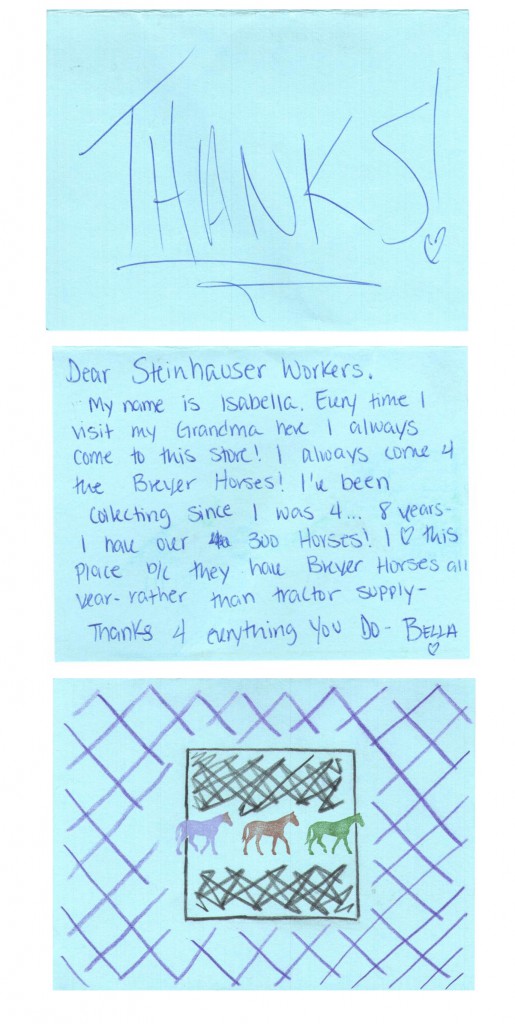 THANKS!
Dear Steinhauser Workers.
My name is Isabella. Every time I
visit my Grandma here I always
come to this store! I always come 4
the Breyer Horses! I've been
collecting since I was 4... 8 years-
I have over 300 Horses! I ♡ this
place b/c they have Breyer Horses all
year- rather than tractor supply-
Thanks 4 everything You Do- BELLA